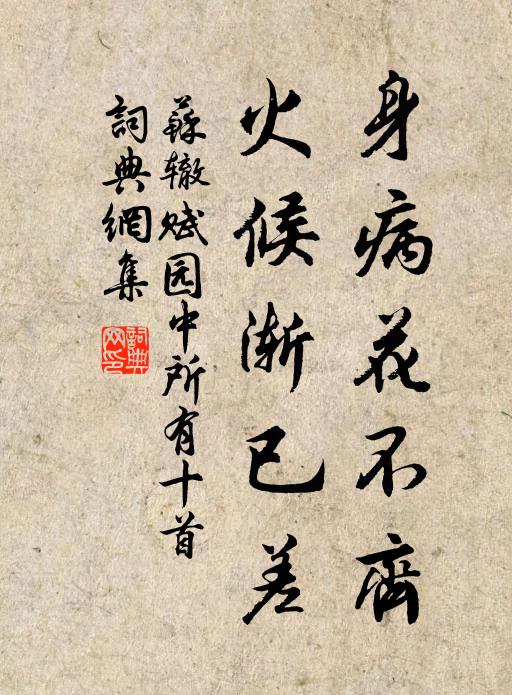 身病花不齊
火候渐已差
蘇辙赋园中所有十首
詞典網集
詞典网印